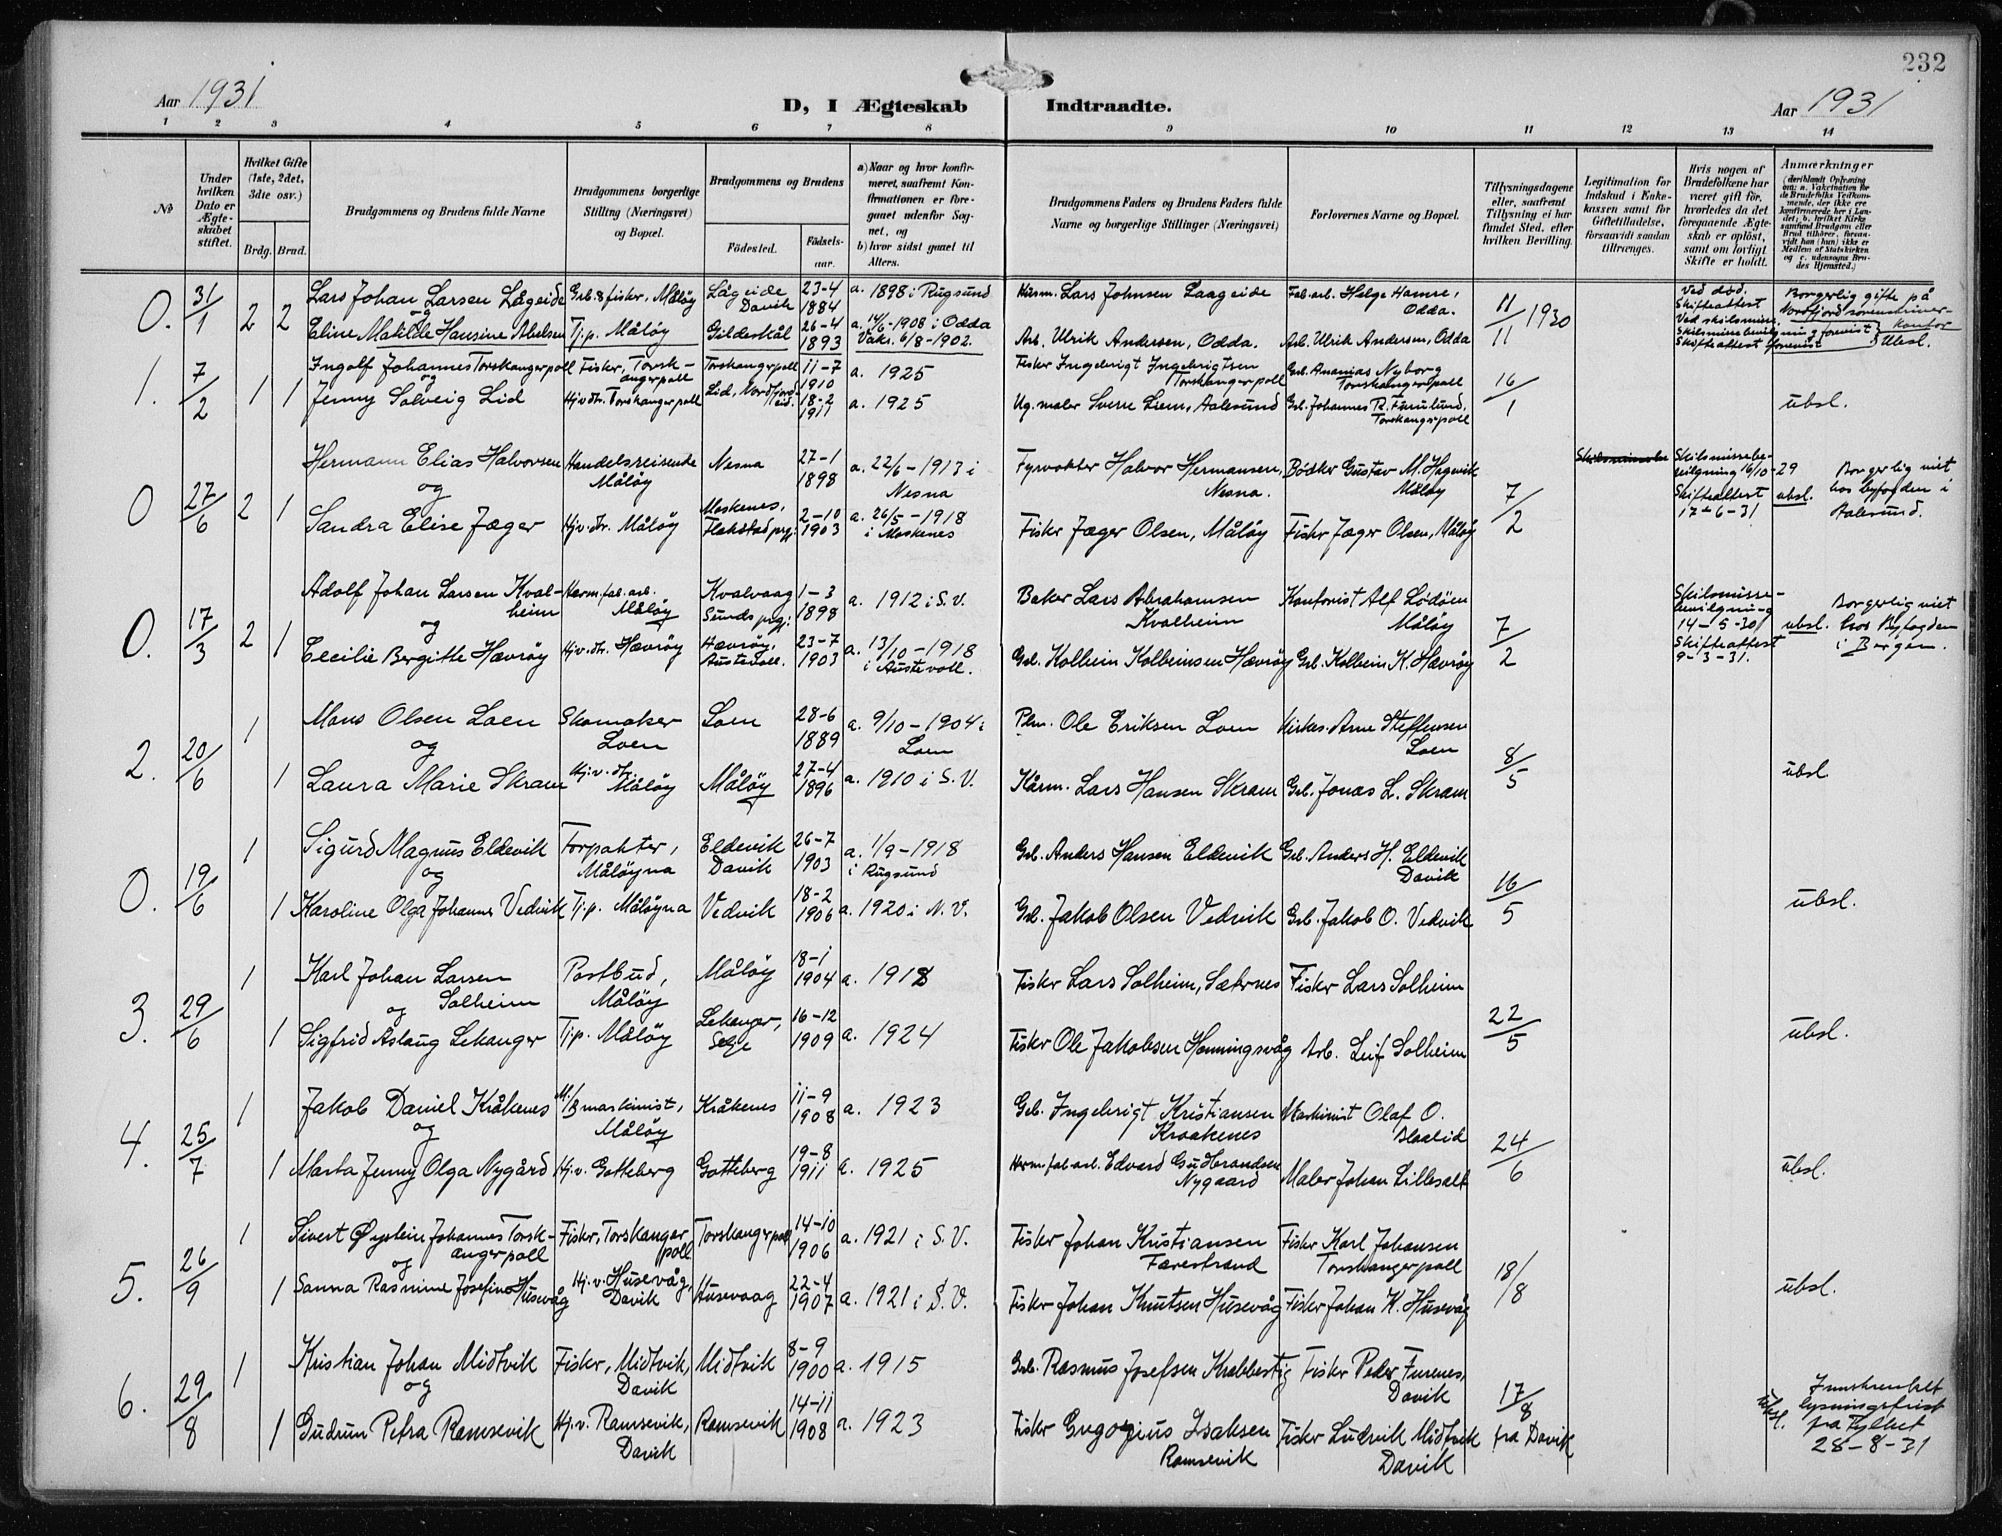 232
Aar 1931
D, I Ægteskab Indtraadte.
Aar 1931
1 2 3 4 5 6 7 8 9 10 11 12 13 14
No
Under hvilken Dato er Ægteskabet stiftet.
Hvilket Gifte (1ste, 2det, 3dte osv.)
Brdg. Brud.
Brudgommens og Brudens fulde Navne
Brudgommens borgerlige Stilling (Næringsvei) og Bopæl.
Brudgommens og Brudens
Födested.
Födselsaar.
a) Naar og hvor konfirmeret, saafremt Konfirmationen er foregaaet udenfor Sognet, og
b) hvor sidst gaaet til Alters.
Brudgommens Faders og Brudens Faders fulde Navne og borgerlige Stillinger (Næringsvei)
Forlovernes Navne og Bopæl.
Tillysningsdagene eller, saafremt Tillysning ei har fundet Sted, efter hvilken Bevilling.
Legitimation for Indskud i Enkekassen samt for Giftetilladelse, forsaavidt saadan tiltrænges.
Hvis nogen af Brudefolkene har været gift för, hvorledes da det foregaaende Ægteskab er oplöst, samt om lovligt Skifte er holdt.
Anmærkninger
0. 31/1 2 2 Lars Johan Larsen Lågeide Grb. & fisker, Måløy Lågeide Davik 23-4 1884 a. 1898 i Rugsund Husm. Lars Johnsen Laageide Fab.arb. Helge Hamre, Odda. 11/11 1930 Ved død. Skifteattest Borgerlig gifte på Nordfjord sorenskriverkontor
og
Eline Matilde Hansine Abelsen Tj.p. Måløy Gildeskål 26-4 1893 a. 14/6-1908 i Odda Vaks. 6/8-1902. Arb. Ulrik Andersen, Odda. Arb. Ulrik Andersen, Odda Ved skilsmisse, Skilsmissebevilgning forevist Skifteattest forevist Ubsl.
1. 7/2 1 1 Ingolf Johannes Torskangerpoll Fisker, Torskangerpoll Torskangerpoll 11-7 1910 a. 1925 Fisker Ingebrigt Ingebrigtsen Torskangerpoll Grb. Ananias Nyborg Torskangerpoll 16/1
og
Jenny Solveig Lid Hj.v.dtr. Torskangerpoll Lid, Nordfjordeid. 18-2 1911 a. 1925 Ug. maler Sverre Liem, Aalesund Grb. Johannes R. Furulund, Torskangerpoll ubsl.
0 27/6 2 1 Hermann Elias Halvorsen Handelsreisende Måløy Nesna 27-1 1898 a. 22/6-1913 i Nesna Fyrvokter Halvor Hermansen, Nesna. Bødker Gustav M. Hagevik Måløy 7/2 Skilsmissebevilgning 16/10-29 Skifteattest 17-6-31 ubsl. Borgerlig viet hos byfogden i Aalesund.
og
Sandra Elise Jæger Hj.v.dtr. Måløy Moskenes, Flakstad prgj. 2-10 1903 a. 26/5-1918 i Moskenes Fisker Jæger Olsen, Måløy Fisker Jæger Olsen, Måløy
0. 17/3 2 1 Adolf Johan Larsen Kvalheim Herm.fab.arb. Måløy Kvalvaag Sunds prgj. 1-3 1898 a. 1912 i S.V. Baker Lars Abrahamsen Kvalheim Kontorist Alf Lødøen Måløy 7/2 Skilsmissebevilgning 14-5-30 Skifteattest 9-3-31. ubsl. Borgerlig viet hos Byfogden i Bergen.
og
Cecilie Bergitte Hævrøy Hj.v.dtr. Hævrøy Hævrøy, Austevoll. 23-7 1903 a. 13/10-1918 i Austevoll. Grb. Kolbein Kolbeinsen Hævrøy Grb. Kolbein K. Hævrøy
2. 20/6 1 Mons Olsen Loen Skomaker Loen Loen 28-6 1889 a. 9/10-1904 i Loen Plm. Ole Eriksen Loen Kirkes. Arne Steffensen Loen 8/5
og
1 Laura Marie Skram Hj.v.dtr. Måløy Måløy 27-4 1896 a. 1910 i S.V. Kårm. Lars Hansen Skram Grb. Jonas L. Skram ubsl
0. 19/6 1 Sigurd Magnus Eldevik Forpakter, Måløyna Eldevik Davik 26-7 1903 a. 1/9-1918 i Rugsund Grb. Anders Hansen Eldevik Grb. Anders H. Eldevik Davik 16/5
og
1 Karoline Olga Johanne Vedvik Tj.p. Måløyna Vedvik 18-2 1906 a. 1920 i N.V. Grb. Jakob Olsen Vedvik Grb. Jakob O. Vedvik ubsl.
3. 29/6 1 Karl Johan Larsen Solheim Postbud, Måløy Måløy 18-1 1904 a. 1918 Fisker Lars Solheim, Sæternes Fisker Lars Solheim 22/5
og
1 Sigfrid Aslaug Lekanger Tj.p. Måløy Lekanger, Selje 16-12 1909 a. 1924 Fisker Ole Jakobsen Henningsvåg Arb. Leif Solheim ubsl.
4. 25/7 1 Jakob Daniel Kråkenes M/B maskinist, Måløy Kråkenes 11-9 1908 a. 1923 Grb. Ingebrigt Kristiansen Kraakenes Maskinist Olaf O. Blaalid 24/6
og
1 Marta Jenny Olga Nygård Hj.v. Gotteberg Gotteberg 19-8 1911 a. 1925 Herm.fab.arb. Edvard Gudbrandsen Nygaard Maler Johan Lillesalt ubsl.
5. 26/9 1 Sivert Øystein Johannes Torskangerpoll Fisker, Torskangerpoll Torskangerpoll 14-10 1906 a. 1921 i S.V. Fisker Johan Kristiansen Færestrand Fisker Karl Johansen Torskangerpoll 18/8
og
1 Sanna Rasmine Josefine Husevåg Hj.v. Husevåg, Davik Husevaag 22-4 1907 a. 1921 i S.V. Fisker Johan Knutsen Husevåg Fisker Johan K. Husevåg ubsl.
6. 29/8 1 Kristian Johan Midtvik Fisker, Midtvik, Davik Midtvik 8-9 1900 a. 1915 Grb. Rasmus Josefsen Krabbestig Fisker Peder Furenes, Davik 17/8 fra Davik
og
1 Gudrun Petra Ramsevik Hj.v. Ramsevik, Davik Ramsevik 14-11 1908 a. 1923 Fisker Gregorius Isaksen Ramsevik Fisker Ludvik Midtvik Davik ubsl. Innskrenket lysningsfrist fra Fylket 28-8-31